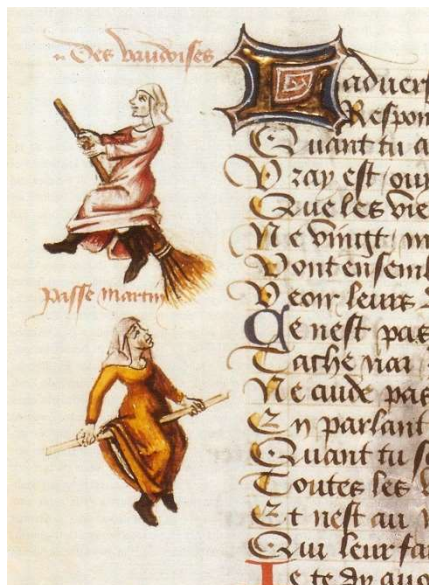 Des vaudoises
passe martin
Ladvers
Respon
Quant tu a
Vray est / ouy
Que les vie
Ne vingt m
Vont ensembl
Veoir leurs
Ce nest pas
Ne cuide pas
En parlant
Quant tu
Toutes les
Et nest au
Qui leur fa
Je te dy